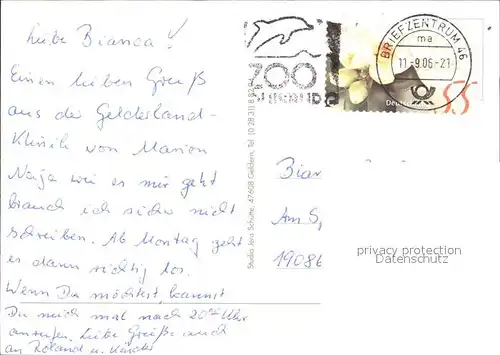 Liebe Bianca!
Einen lieben Greuß
aus der Gelderland-
Klinik von Marion
Naja wie es mir geht
brauch ich sicher nicht
schreiben. Ab Montag geht
es dann richtig los.
Wenn Du möchtest, kannst
Du mich mal nach 20 00 Uhr
anrufen. Liebe Greuße auch
an Roland u. Kinder
ZOO
BRIEFZENTRUM 46
ma
11.-9.06-21
Deutsche
55
Studio Jörg Schütte, 47608 Geldern, Tel. (0 28 31) 8
Bian
Am S
19086
privacy protection
Datenschutz